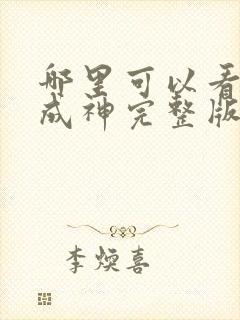 哪里可以看
成神完整版
李焕喜